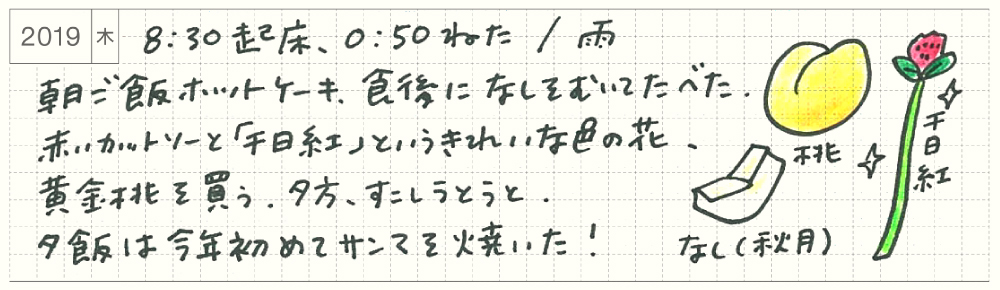 2019 木 8:30 起床、0:50 ねた / 雨
朝ご飯ホットケーキ、食後になしをむいてたべた.
赤いカットソーと「千日紅」というきれいな色の花、
黄金桃を買う. 夕方、すこしうとうと.
夕飯は今年初めてサンマを焼いた!
桃
千日紅
なし(秋月)